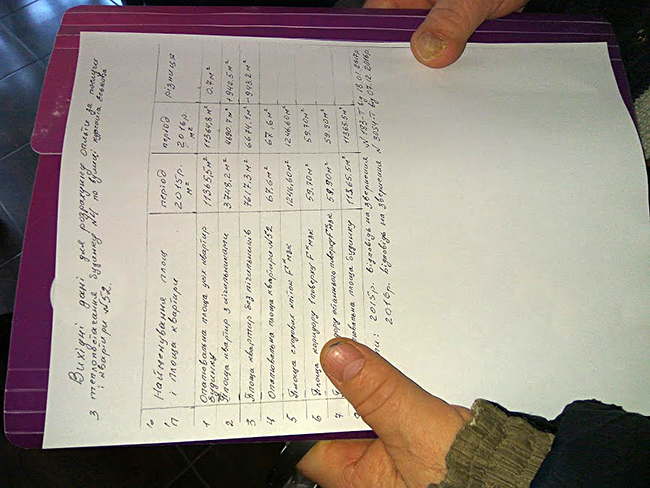 Вихідні дані для розрахунку оплати за послуги
з теплопостачання будинку №4 по вулиці
і квартири №52.
%
п Найменування площ і площа квартири період 2015р. м² період 2016р. м² різниця
1 Опалювальна площа цих квартир будинку 11365,5м² 11364,8м² 0,7м²
2 Площа квартир з лічильниками 3748,2м² 4690,7м² +942,5м²
3 Площа квартир без лічильників 7617,3м² 6674,1м² -943,2м²
4 Опалювальна площа квартири №52 67,6м² 67,6м²
5 Площа сходових кліток Fмзк 1246,60м² 1246,60м²
6 Площа коридору 1 поверху Fмзк 59,70м² 59,70м²
7 коридору останнього поверху Fмзк 58,90м² 59,90м²
площа будинку 11365,5м² 11365,5м²
2015р. відповідь на звернення № 183-Т від 18.01.2017р.
2016р. відповідь на звернення № 3054-Т від 07.12.2016р.